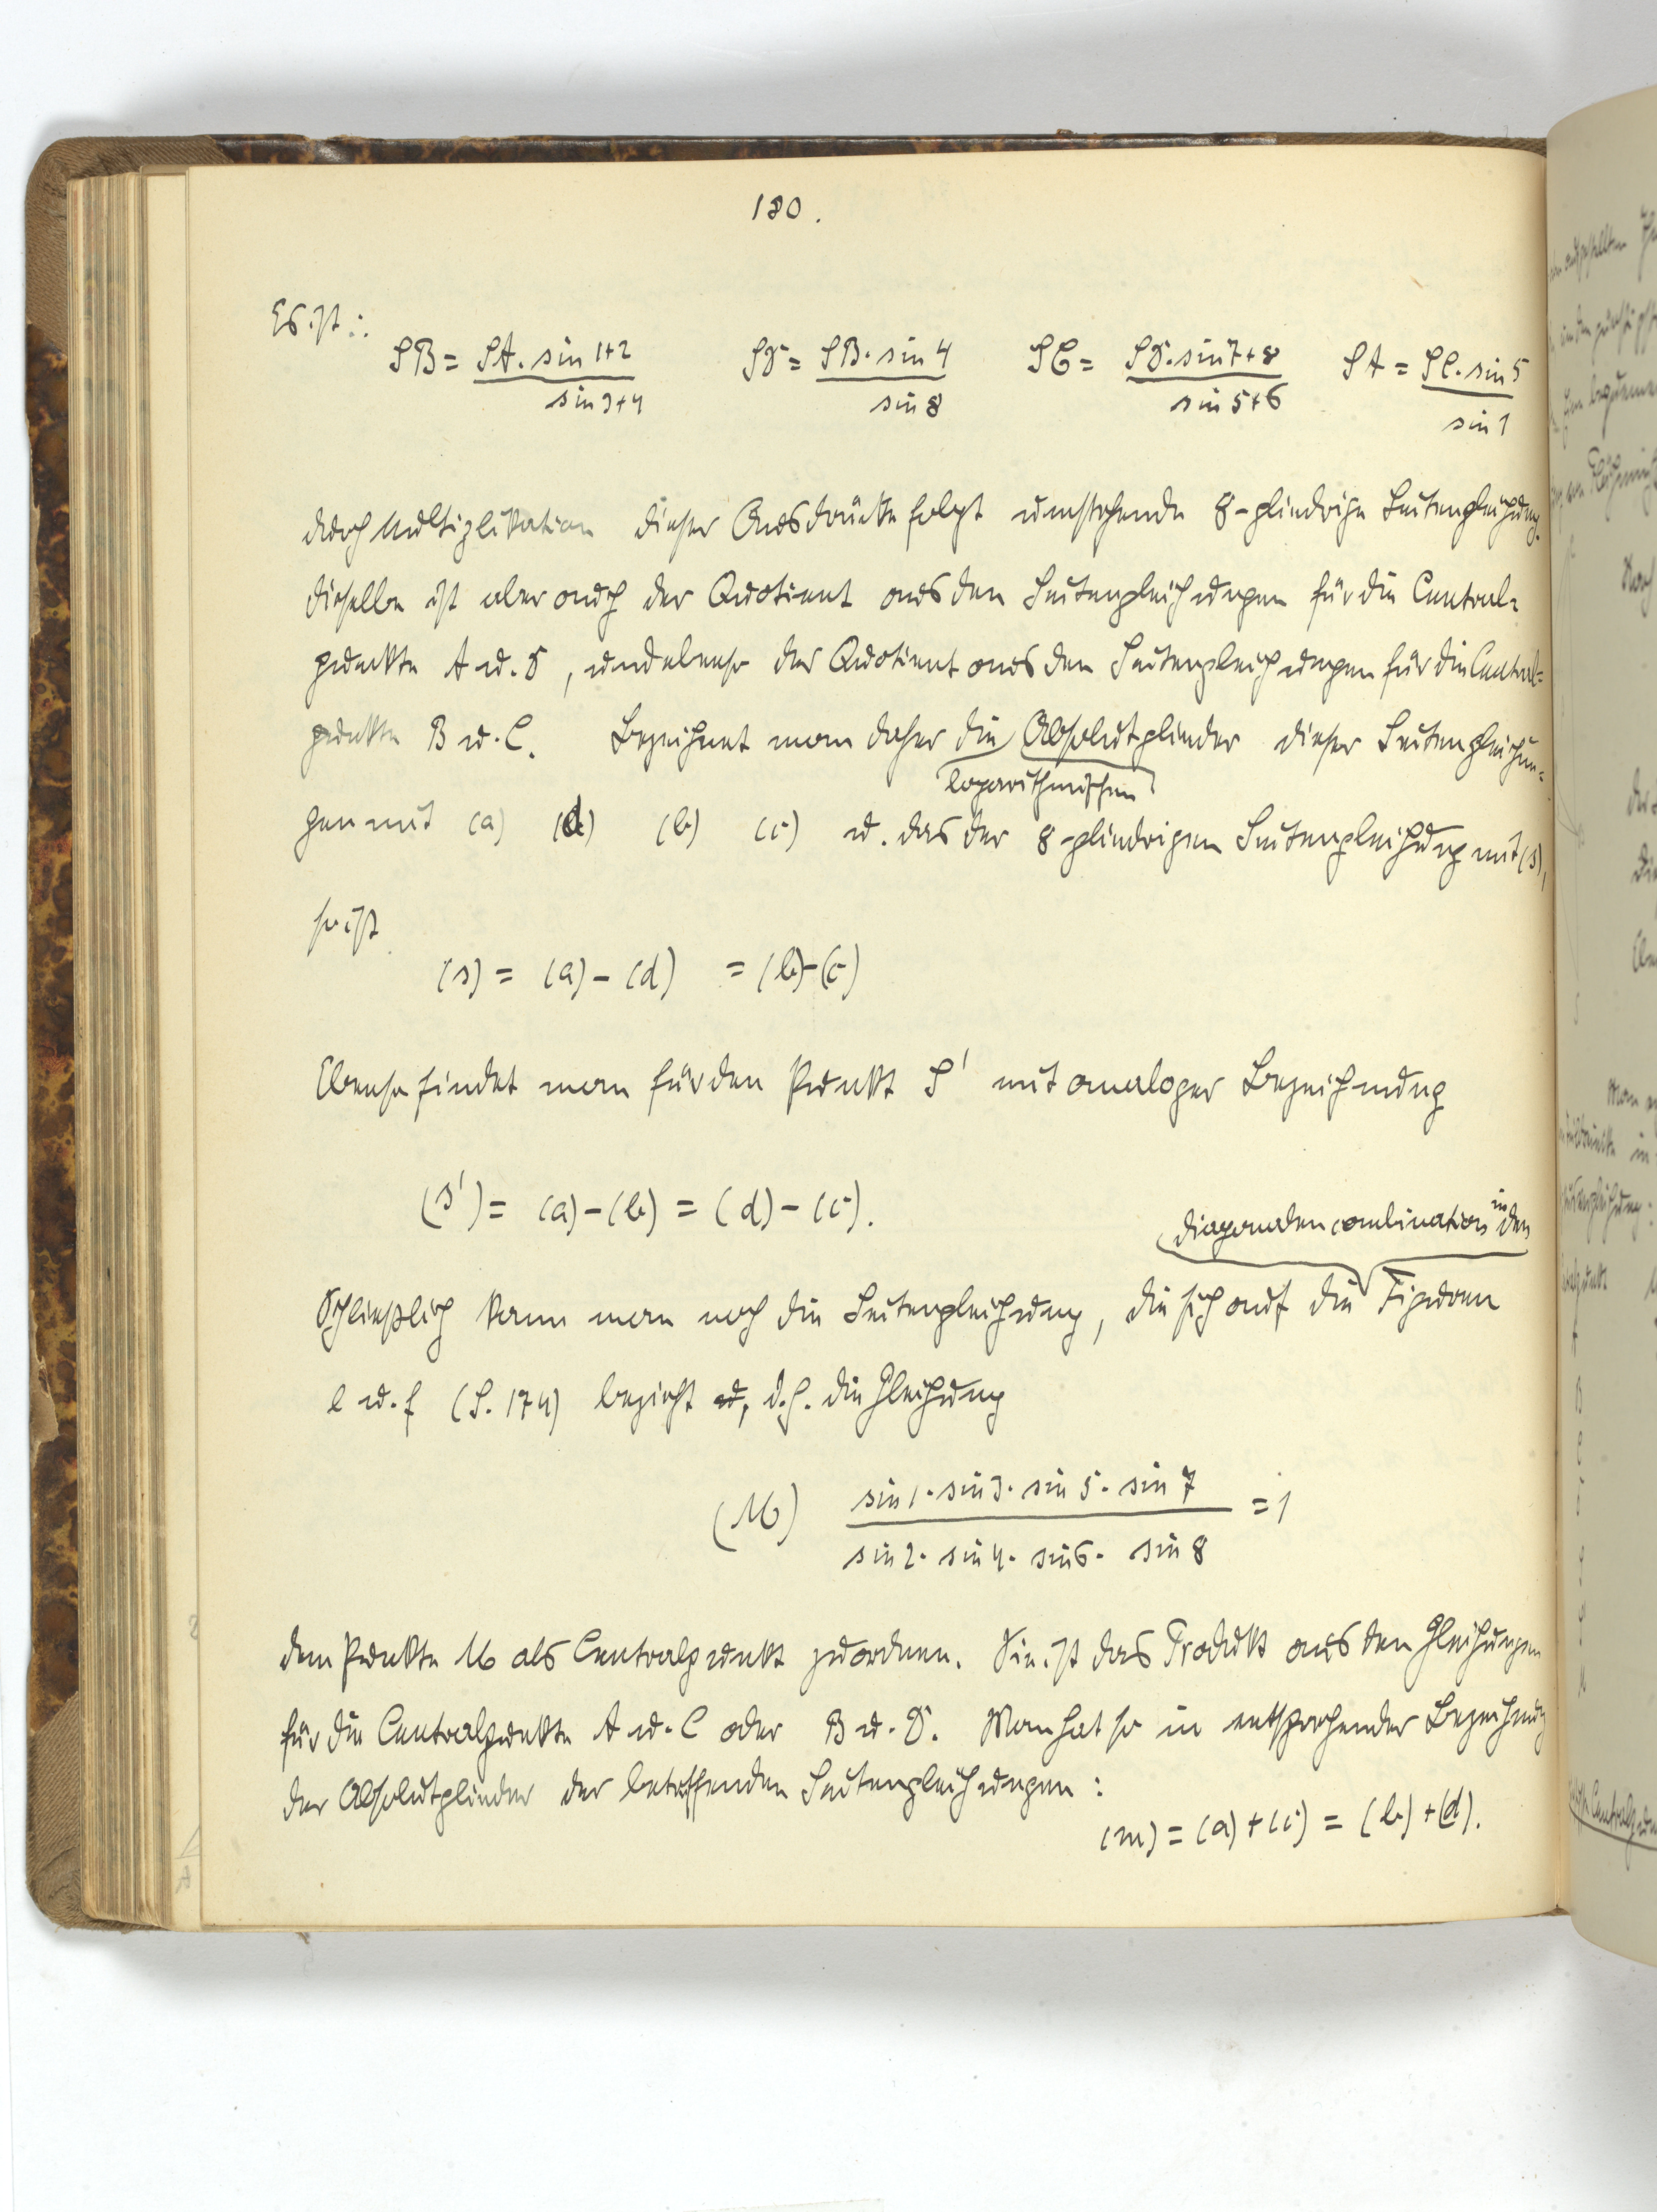 180.
Es ist:
SB = SA. sin 1+2 / sin 3+4   SD = SB. sin 4 / sin 8   SC = SD. sin 7+8 / sin 5+6   SA = SC. sin 5 / sin 1
durch Multiplikation dieser Ausdrücke folgt umstehende 8-gliedrige Seitengleichung.
dieselbe ist aber auch der Quotient aus den Seitengleichungen für die Central=
punkte A u. D, und ebenso der Quotient aus den Seitengleichungen für die Central=
punkte B u. C. Bezeichnet man daher die Absolutglieder dieser Seitengleichun=
logarithmischen
gen mit (a) (d) (b) (c) u. das der 8-gliedrigen Seitengleichung mit (s),
so ist
(s) = (a) - (d) = (b) - (c)
Ebenso findet man für den Punkt S' mit analoger Bezeichnung
(s') = (a) - (b) = (d) - (c).
diagonalencombination in den
Schließlich kann man noch die Seitengleichung, die sich auf die Figuren
e u. f (S. 174) bezieht, d.h. die Gleichung
(M) sin 1. sin 3. sin 5. sin 7 / sin 2. sin 4. sin 6. sin 8 = 1
dem Punkte M als Centralpunkt zuordnen. Sie ist das Produkt aus den Gleichungen
für die Centralpunkte A u. C oder B u. D. Man hat so in entsprechender Bezeichnung
der Absolutglieder der betreffenden Seitengleichungen:
(m) = (a) + (c) = (b) + (d).